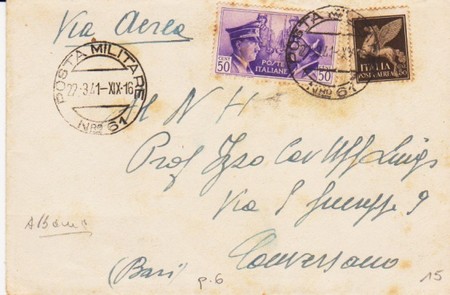 Via Aerea
POSTA MILITARE
22·3·41-XIX·16
Nro 61
50
POSTE
ITALIANE
50
POSTA MILITARE
Nro 61
ITALIA
POSTA AEREA
Al N H
Prof Izzo Cav Uff Luigi
Via S Giuseppe 9
Conversano
(Bari)
p.6
15